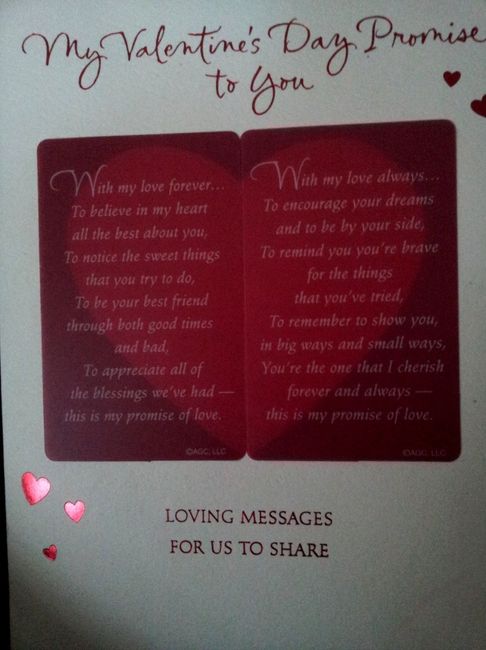 My Valentine's Day Promise
to You
With my love forever...
To believe in my heart
all the best about you,
To notice the sweet things
that you try to do,
To be your best friend
through both good times
and bad,
To appreciate all of
the blessings we've had —
this is my promise of love.
©AGC, LLC
With my love always...
To encourage your dreams
and to be by your side,
To remind you you're brave
for the things
that you've tried,
To remember to show you,
in big ways and small ways,
You're the one that I cherish
forever and always —
this is my promise of love.
©AGC, LLC
LOVING MESSAGES
FOR US TO SHARE